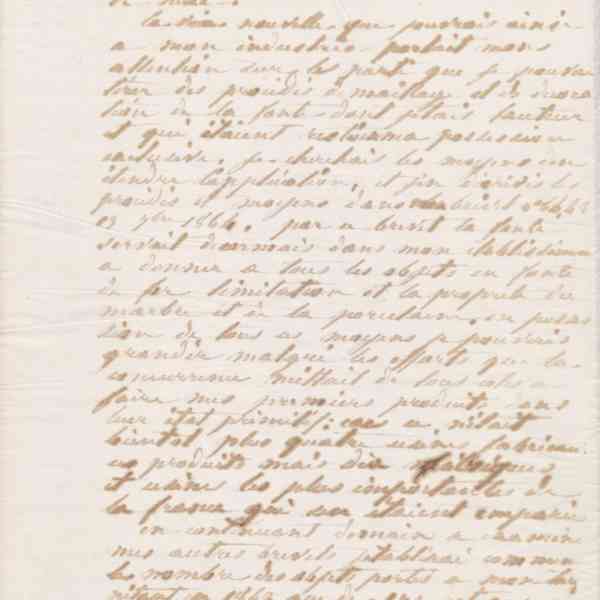 la voie nouvelle que j'ouvrais ainsi
a mon industrie portait mon
attention sur les parti que je pouvai
tirer des procédés d'émaillage et de décora
tion de la fonte dont j'étais l'auteur
et qui étaient restés ma possession
exclusive. je cherchais les moyens d'en
étendre l'application, et j'en décrivis les
procédés et moyens dans un brevet
1864. par ce brevet la fonte
servait désormais dans mon établisseme
a donner a tous les objets en fonte
de fer l'imitation et la propreté du
marbre et de la porcelaine. en posses
sion de tous ces moyens je pouvais
grandir malgré les efforts que la
concurrence mettait de tous cotés a
faire mes premiers produits dans
leur état primitif: car ce n'était
bientot plus quatre usines fabricau
ces produits mais dix fabriques
et usines les plus importantes de
la france qui s'en étaient emparée
en continuant demain a examin
mes autres brevets j'établirai comme
le nombre des objets portés a mon